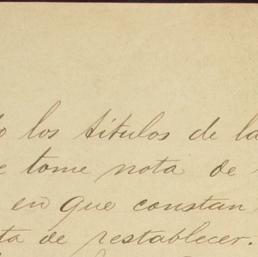 los títulos de la
tome nota de
en que constan
de restablecer.